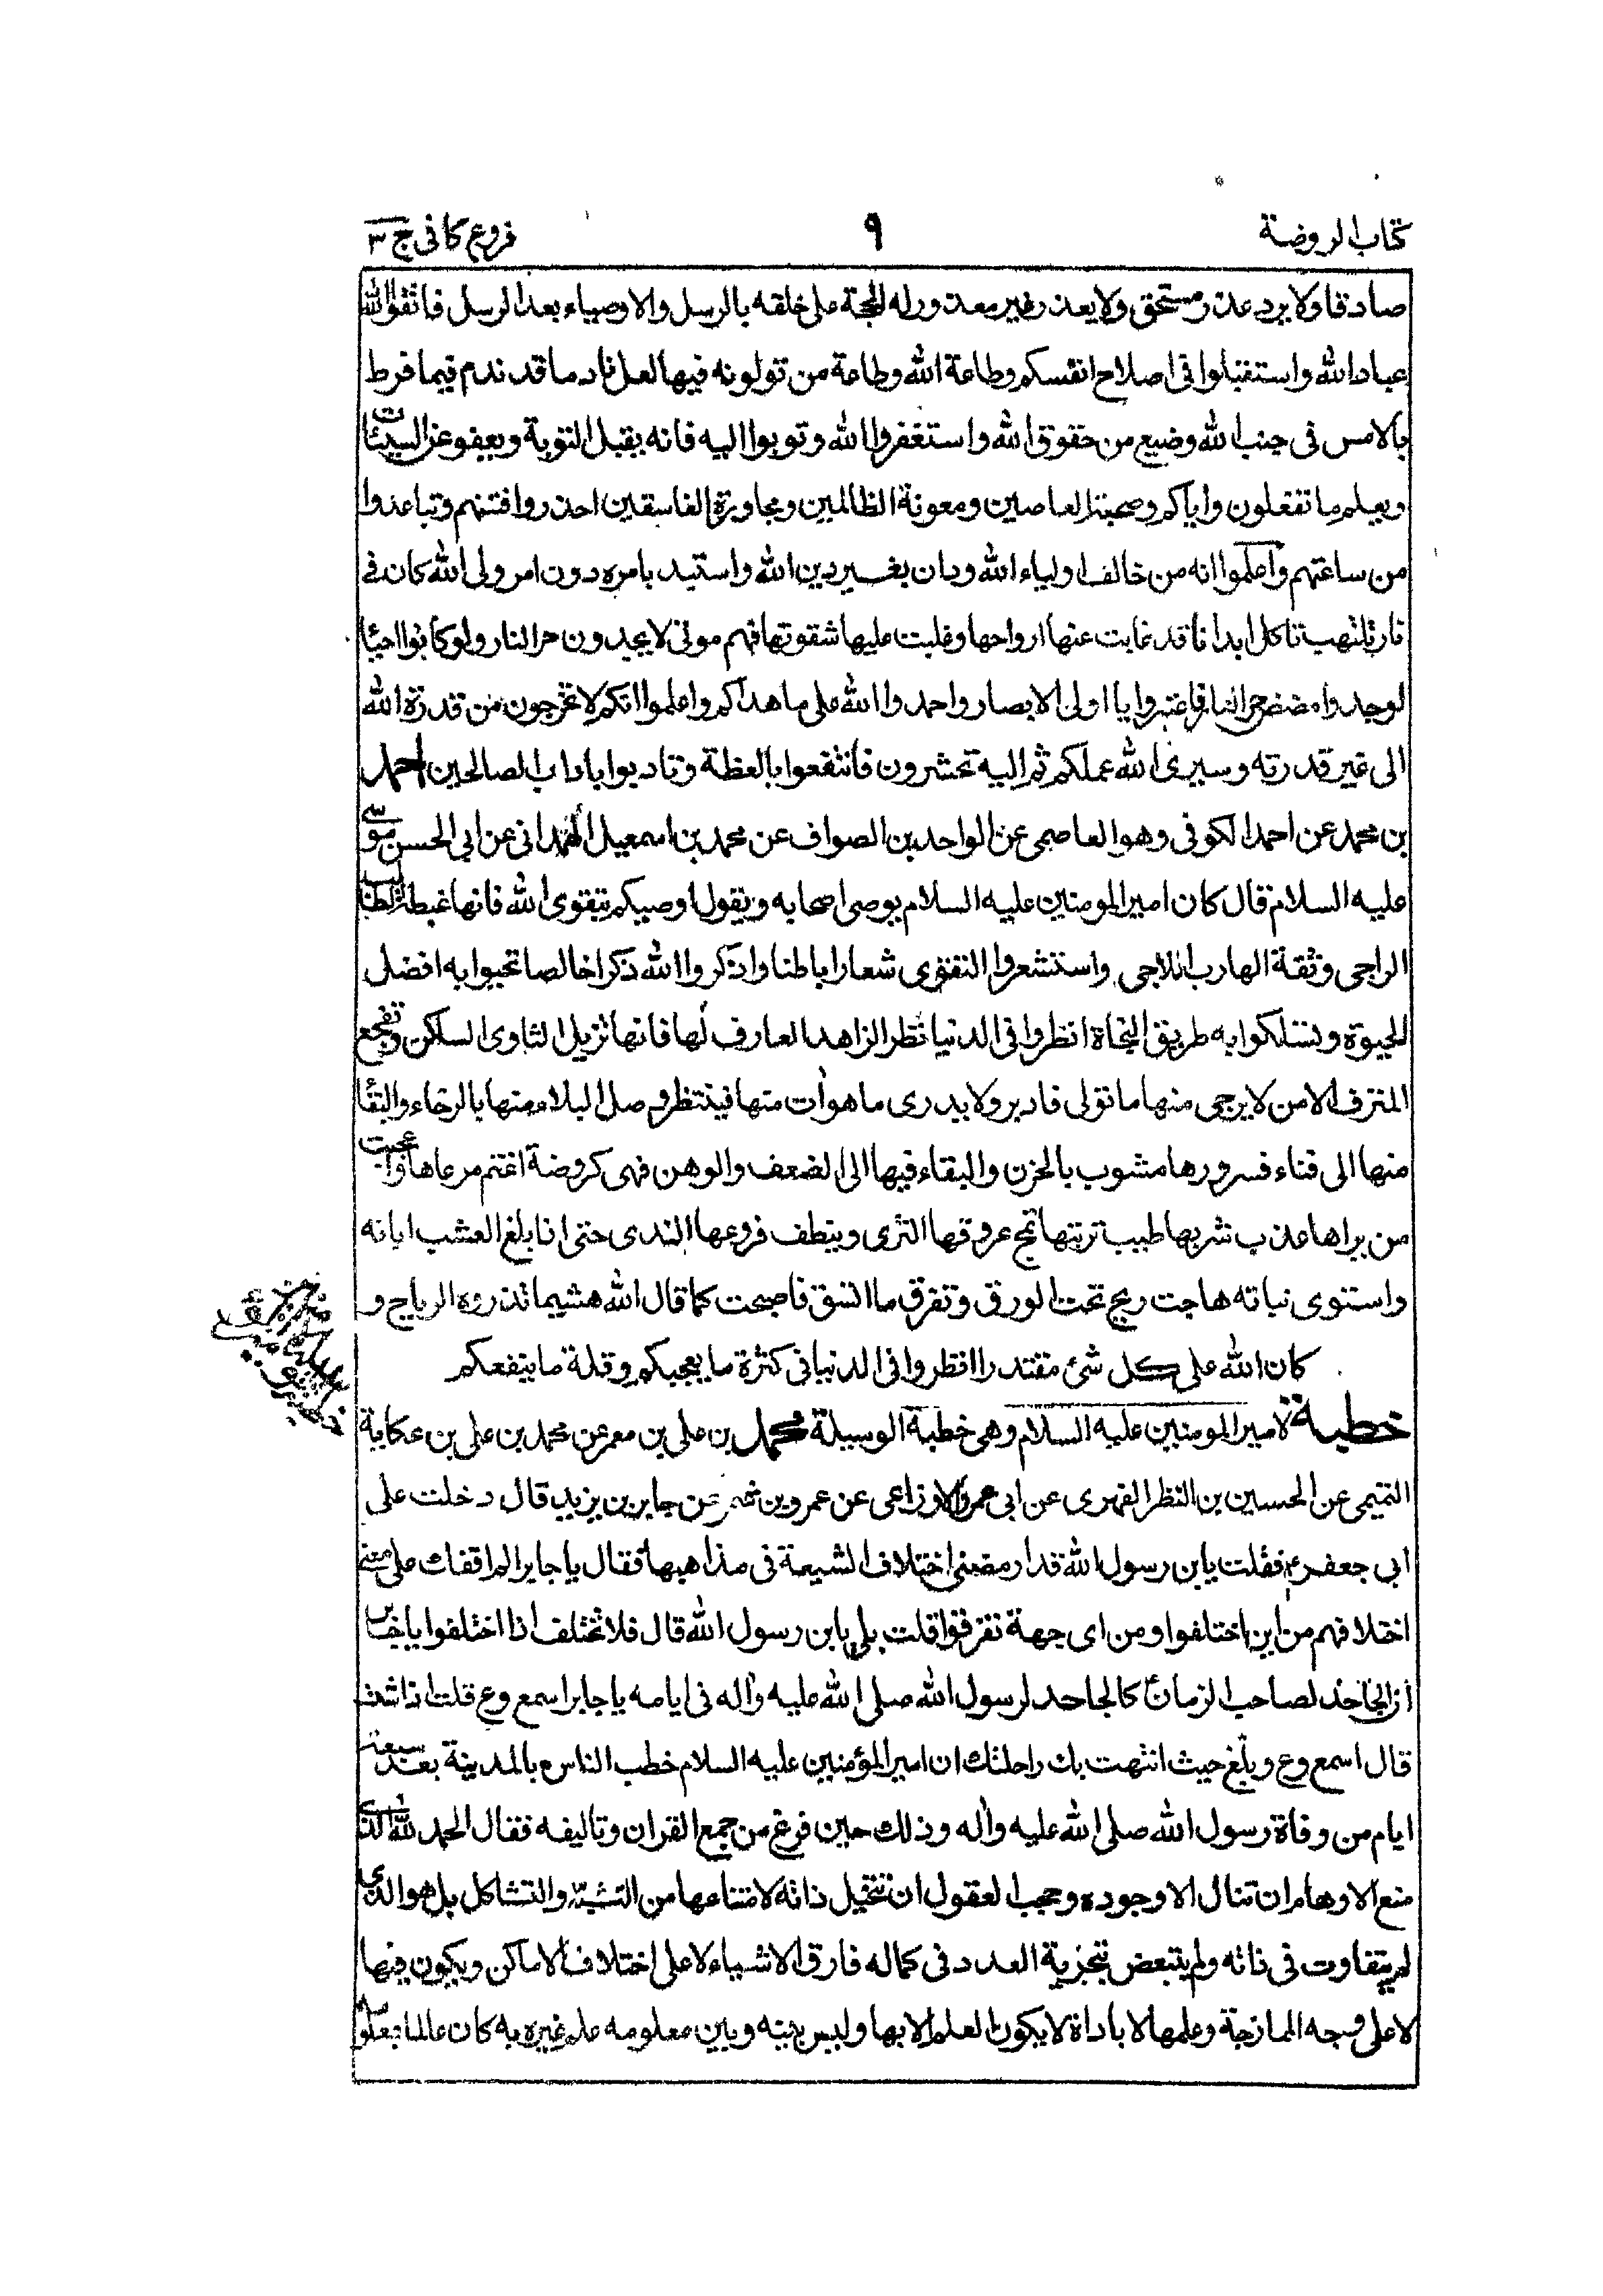 كتاب الروضة
٩
فروع كافى ج ٣
صادقا ولا يرد عذر مستحق ولا يعذر غير معذور له الحجة على خلقه بالرسل والاوصياء بعد الرسل فاتقوا الله
عباد الله واستقبلوا فى اصلاح انفسكم وطاعة الله وطاعة من تولونه فيها لعل نادما قد ندم فيما فرط
بالامس فى جنب الله وضيع من حقوق الله واستغفروا الله وتوبوا اليه فانه يقبل التوبة ويعفو عن السيئات
ويعلم ما تفعلون واياكم وصحبة العاصين ومعونة الظالمين ومجاورة الفاسقين احذروا فتنتهم وتباعدوا
من ساحتهم واعلموا انه من خالف اولياء الله ودان بغير دين الله واستبد بامره دون امر ولى الله كان فى
نار تلتهب تاكل ابدانا قد غابت عنها ارواحها وغلبت عليها شقوتها فهم موتى لا يجدون حر النار ولو كانوا احياء
لوجدوا مضض حر النار فاعتبروا يا اولى الابصار واحمدوا الله على ما هداكم واعلموا انكم لا تخرجون من قدرة الله
الى غير قدرته وسيرى الله عملكم ثم اليه تحشرون فانتفعوا بالعظة وتادبوا باداب الصالحين احمد
بن محمد عن احمد الكوفى وهو العاصمى عن الواحد بن الصواف عن محمد بن اسمعيل الهمدانى عن ابى الحسن موسى
عليه السلام قال كان امير المومنين عليه السلام يوصى اصحابه ويقول اوصيكم بتقوى الله فانها غبطة الطالب
الراجى وثقة الهارب اللاجى واستشعروا التقوى شعارا باطنا واذكروا الله ذكرا خالصا تحيوا به افضل
الحيوة وتسلكوا به طريق النجاة انظروا فى الدنيا نظر الزاهد العارف لها فانها تزيل الثاوى الساكن وتفجع
المترف الامن لا يرجى منها ما تولى فادبر ولا يدرى ما هو آت منها فينتظر وصل البلاء منها بالرخاء والبقاء
منها الى فناء فسرورها مشوب بالحزن والبقاء فيها الى الضعف والوهن فهى كروضة اغتم مرعاها واعجبت
من يراها عذب شربها طيب تربتها تمج عروقها الثرى وينطف فروعها الندى حتى اذا بلغ العشب ابانه
واستوى نباته هاجت ريح تحت الورق وتفرق ما اتسق فاصبحت كما قال الله هشيما تذروه الرياح و
كان الله على كل شئ مقتدرا انظروا فى الدنيا فى كثرة ما يعجبكم وقلة ما ينفعكم
خطبة لامير المومنين عليه السلام وهى خطبة الوسيلة محمد بن على بن معمر عن محمد بن على بن عكاية
التميمى عن الحسين بن النظر الفهرى عن ابى عمرو الاوزاعى عن عمرو بن شمر عن جابر بن يزيد قال دخلت على
ابى جعفر ع فقلت يابن رسول الله قد ارمضنى اختلاف الشيعة فى مذاهبها فقال يا جابر الم اقفك على معنى
اختلافهم من اين اختلفوا ومن اى جهة تفرقوا قلت بلى يابن رسول الله قال فلا تختلف اذا اختلفوا يا جابر
ان الجاحد لصاحب الزمان كالجاحد لرسول الله صلى الله عليه وآله فى ايامه يا جابر اسمع وع قلت اذا شئت
قال اسمع وع وبلغ حيث انتهت بك راحلتك ان امير المؤمنين عليه السلام خطب الناس بالمدينة بعد سبعة
ايام من وفاة رسول الله صلى الله عليه وآله وذلك حين فرغ من جمع القران وتاليفه فقال الحمد لله الذى
منع الاوهام ان تنال الا وجوده وحجب العقول ان تتخيل ذاته لامتناعها من الشبه والتشاكل بل هو الذى
لم يتفاوت فى ذاته ولم يتبعض بتجزية العدد فى كماله فارق الاشياء لا على اختلاف الاماكن ويكون فيها
لا على وجه الممازجة وعلمها لا باداة لا يكون العلم الا بها وليس بينه وبين معلومه علم غيره به كان عالما بمعلومه